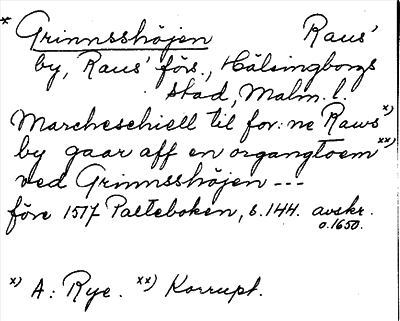 * Grinnsshöjen Raus'
by, Raus' förs., Hälsingborgs
stad, Malm. l.
Marcheschiell til for:ne Raws x)
by gaar aff en organgtoem xx)
ved Grinnsshöjen ---
före 1517 Palteboken, s. 144. avskr.
o.1650.
x) A: Rye. xx) Korrupt.